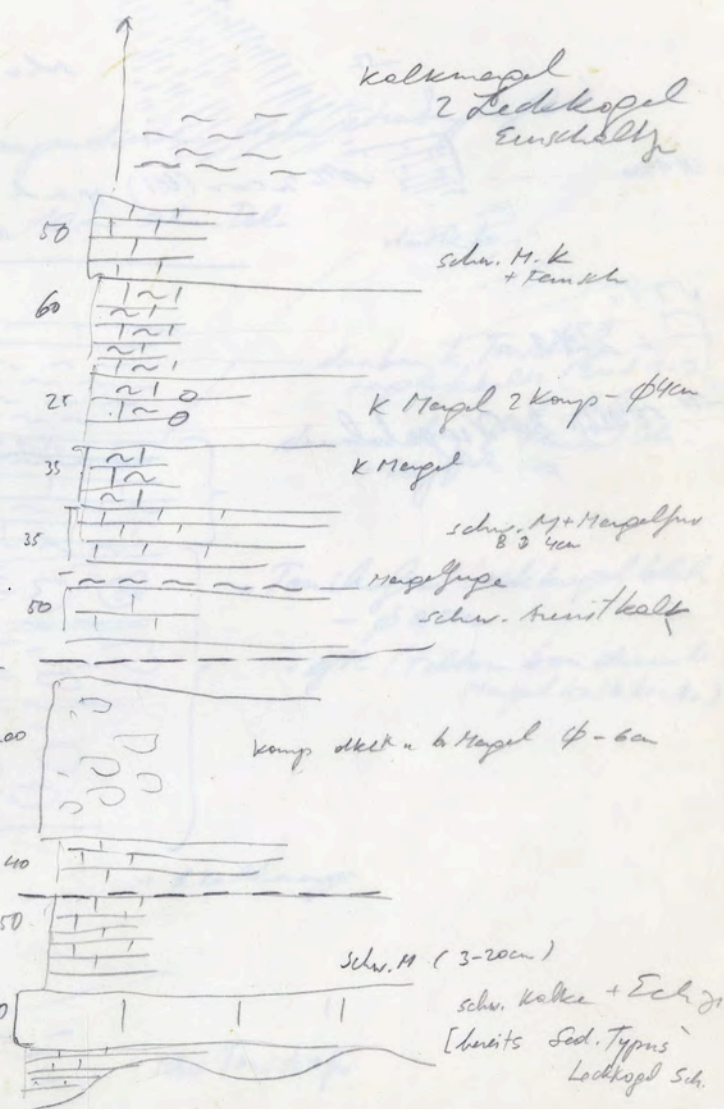 Kalkmergel
z Leckkogel
Einschaltg
50
schw. M. K
60
25
K Mergel z Komp - ϕ4cm
35
K Mergel
35
schw. M + Mergelfug
8 4cm
Mergelfuge
50
schw. kalk
00
Komp dklk u Mergel ϕ - 6cm
40
50
schw. M (3-20cm)
0
schw. Kalke + Echi
[bereits Sed. Typus
Leckkogl Sch.